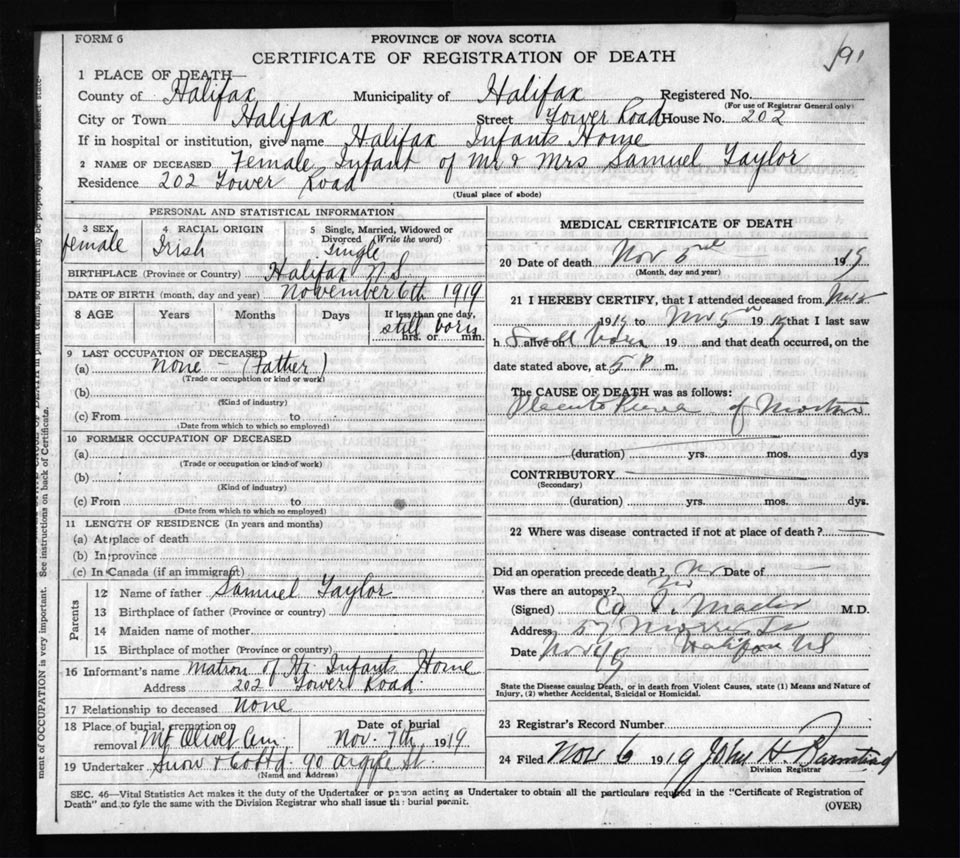 FORM 6
PROVINCE OF NOVA SCOTIA
CERTIFICATE OF REGISTRATION OF DEATH
191
1 PLACE OF DEATH—
County of Halifax Municipality of Halifax Registered No.
(For use of Registrar General only)
City or Town Halifax Street Tower Road House No. 202
If in hospital or institution, give name Halifax Infants Home
2 NAME OF DECEASED Female Infant of Mr & Mrs Samuel Taylor
Residence 202 Tower Road
(Usual place of abode)
PERSONAL AND STATISTICAL INFORMATION
3 SEX 4 RACIAL ORIGIN 5 Single, Married, Widowed or Divorced (Write the word)
female Irish Single
BIRTHPLACE (Province or Country) Halifax N.S.
DATE OF BIRTH (month, day and year) November 6th 1919
8 AGE Years Months Days If less than one day,
still born
hrs. or min.
9 LAST OCCUPATION OF DECEASED
(a) none - (Father)
(Trade or occupation or kind or work)
(b)
(Kind of industry)
(c) From to
(Date from which to which so employed)
10 FORMER OCCUPATION OF DECEASED
(a)
(Trade or occupation or kind of work)
(b)
(Kind of industry)
(c) From to
(Date from which to which so employed)
11 LENGTH OF RESIDENCE (In years and months)
(a) At place of death
(b) In province
(c) In Canada (if an immigrant)
Parents
12 Name of father Samuel Taylor
13 Birthplace of father (Province or country)
14 Maiden name of mother
15 Birthplace of mother (Province or country)
16 Informant's name Matron of Hx Infants Home
Address 202 Tower Road
17 Relationship to deceased none
18 Place of burial, cremation or removal Mt Olivet Cem. Date of burial Nov. 7th, 1919
19 Undertaker Snow & Co Ltd. 90 Argyle St.
(Name and Address)
MEDICAL CERTIFICATE OF DEATH
20 Date of death Nov 1919
(Month, day and year)
21 I HEREBY CERTIFY, that I attended deceased from Nov
1919 to Nov 5 1919 that I last saw
h alive on born 19 and that death occurred, on the
date stated above, at 5 P m.
The CAUSE OF DEATH was as follows:
Placenta of
(duration) yrs. mos. dys
CONTRIBUTORY
(Secondary)
(duration) yrs. mos. dys.
22 Where was disease contracted if not at place of death?
Did an operation precede death? No Date of
Was there an autopsy? No
(Signed) M.D.
Address 57 Morris St
Date Nov Halifax NS
State the Disease causing Death, or in death from Violent Causes, state (1) Means and Nature of
Injury, (2) whether Accidental, Suicidal or Homicidal.
23 Registrar's Record Number
24 Filed Nov 6 1919 John H. Barnstead
Division Registrar
SEC. 46—Vital Statistics Act makes it the duty of the Undertaker or person acting as Undertaker to obtain all the particulars required in the "Certificate of Registration of
Death" and to fyle the same with the Division Registrar who shall issue the burial permit.
(OVER)
ment of OCCUPATION is very important. See instructions on back of Certificate.